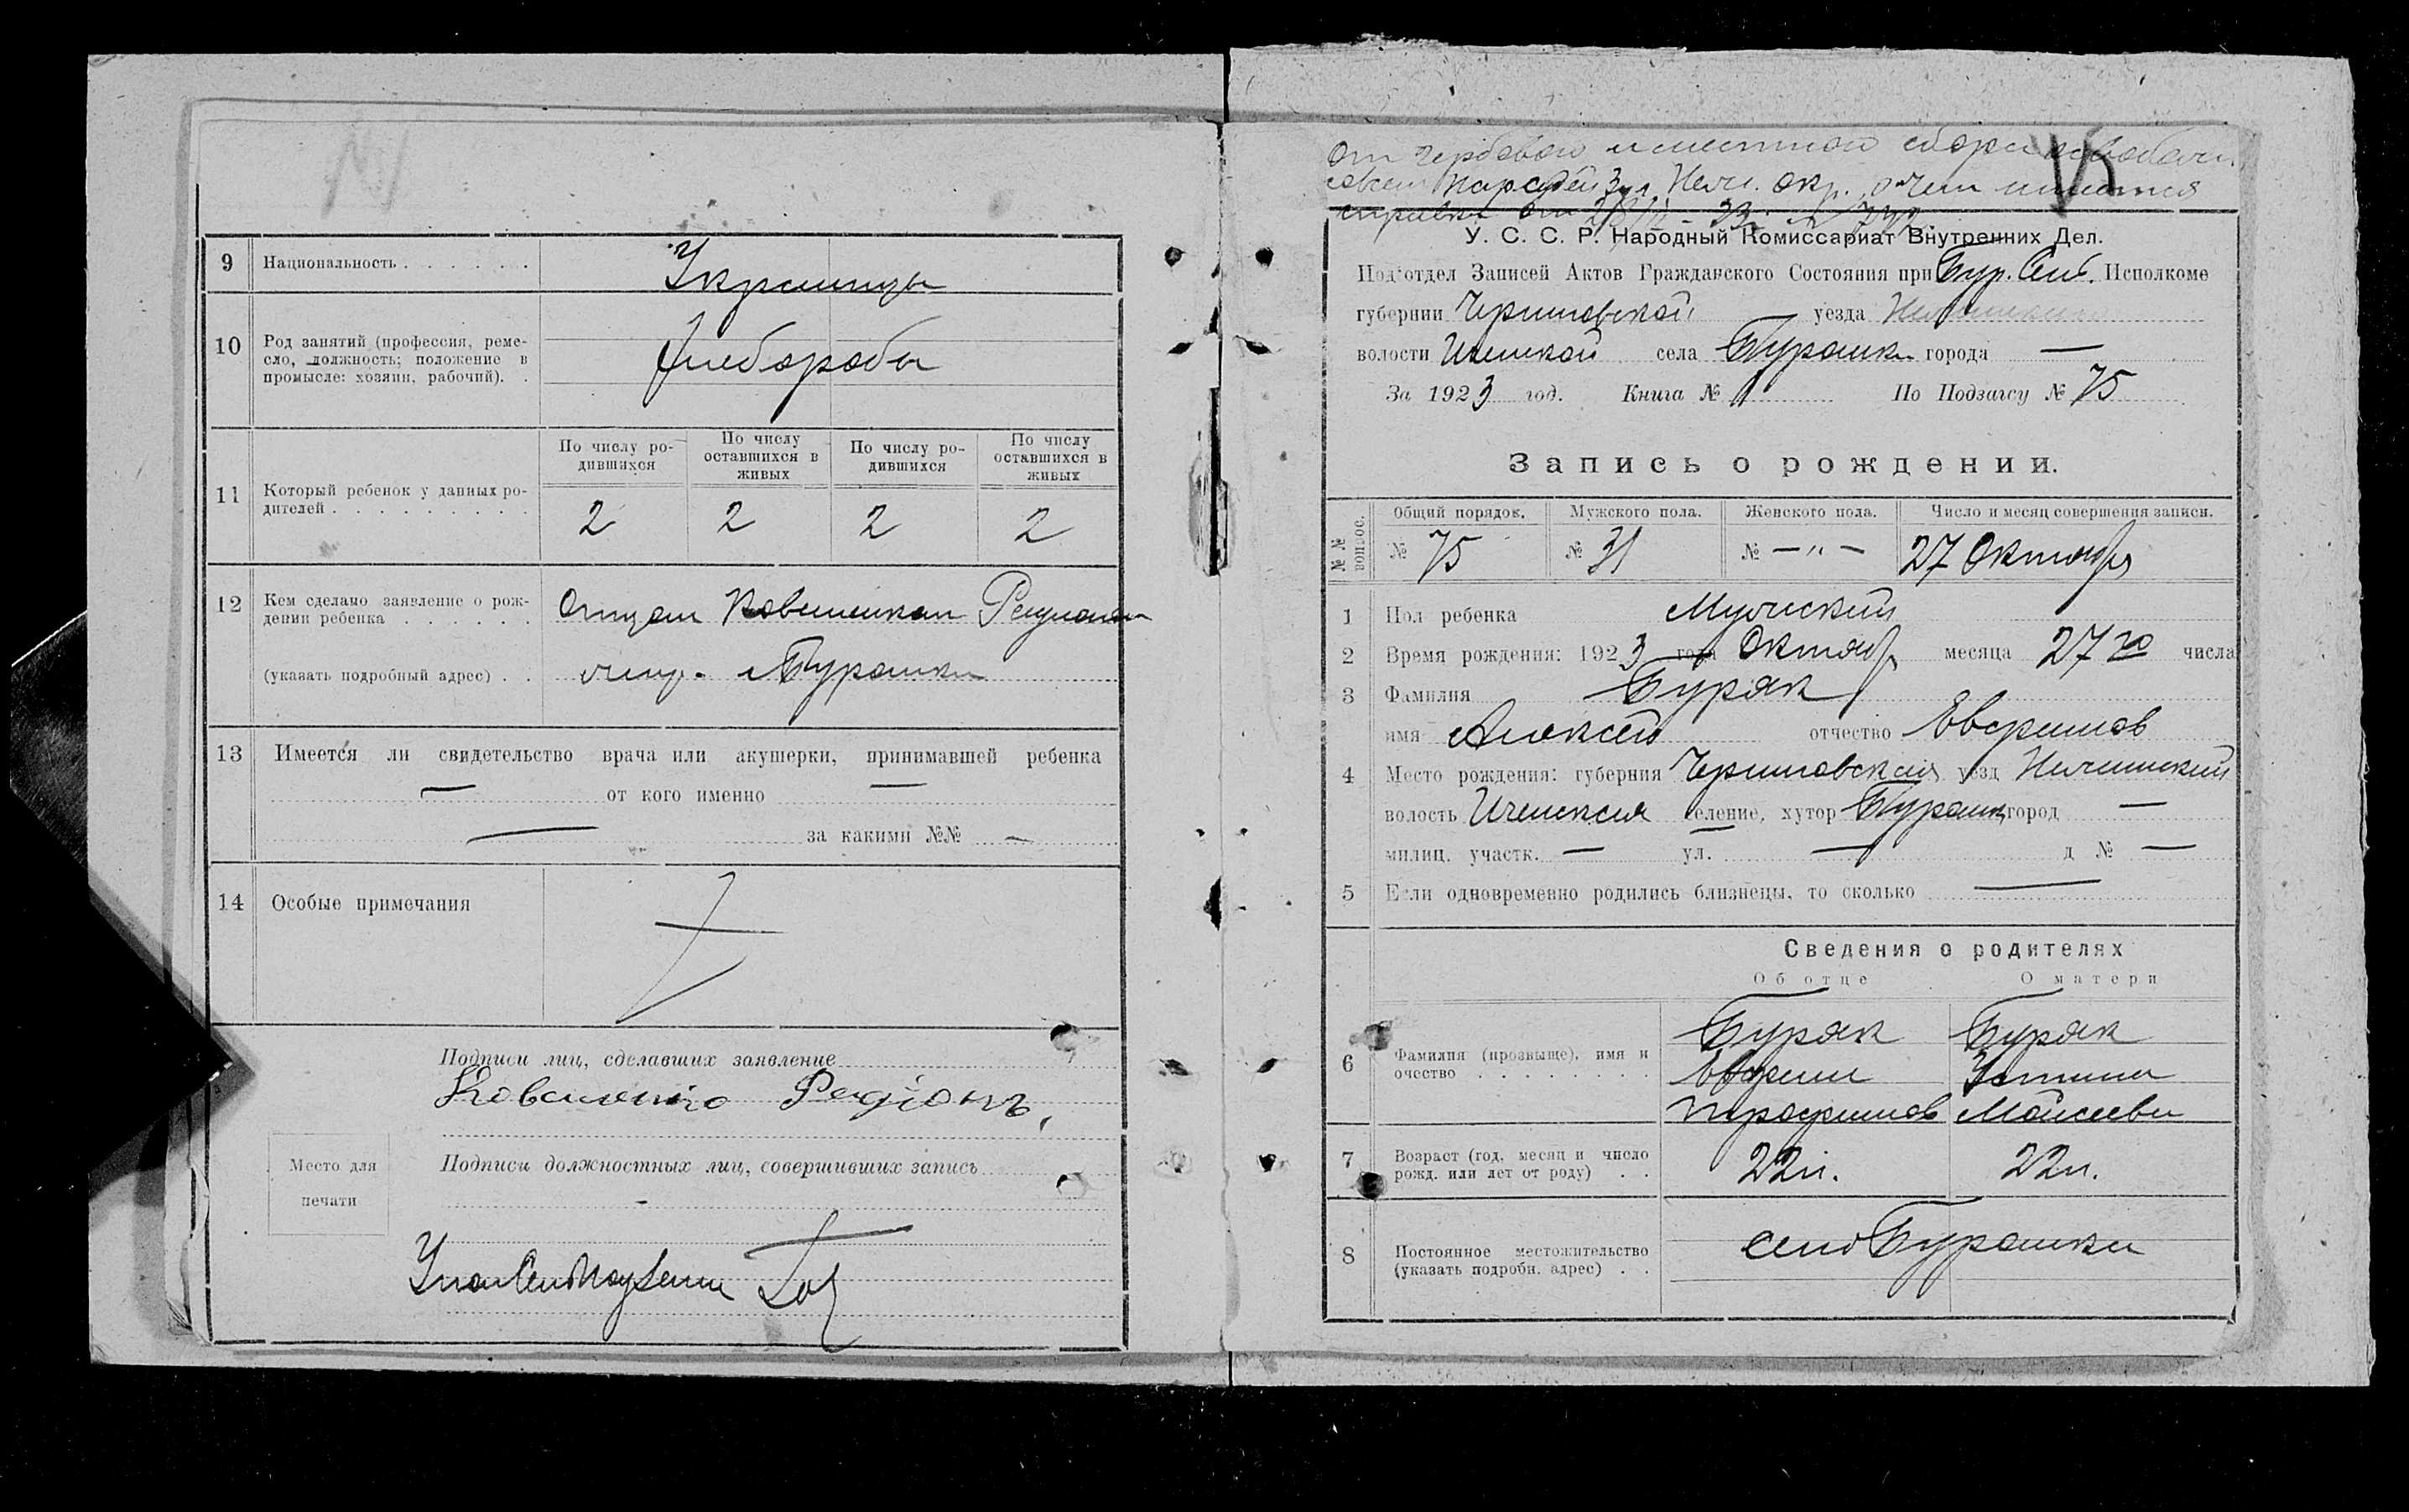 9 Национальность . . . . . . Украинцы
10 Род занятий (профессия, реме-
сло, должность; положение в
промысле: хозяин, рабочий). .
Хлеборобы
По числу ро-
дившихся
По числу
оставшихся в
живых
По числу ро-
дившихся
По числу
оставшихся в
живых
11 Который ребенок у данных ро-
дителей . . . . . . . . .
2 2 2 2
12 Кем сделано заявление о рож-
дении ребенка . . . . . . Отцом
(указать подробный адрес) . .
13 Имеется ли свидетельство врача или акушерки, принимавшей ребенка
— от кого именно —
— за какими №№ —
14 Особые примечания
Подписи лиц, сделавших заявление
Коваленко Родіонъ,
Место для
печати
Подписи должностных лиц, совершивших запись
От гербовой и местной сбора
справка от
У. С. С. Р. Народный Комиссариат Внутренних Дел.
Под'отдел Записей Актов Гражданского Состояния при Бур. Сель. Исполкоме
губернии Черниговской уезда
волости Иченской села Бурошки города —
За 1923 год. Книга № 1 По Подзагсу № 75
Запись о рождении.
№ № вопрос.
Общий порядок. Мужского пола. Женского пола. Число и месяц совершения записи.
№ 75 № 31 № — " — 27 Октября
1 Пол ребенка Мужский
2 Время рождения: 1923 года Октября месяца 27го числа
3 Фамилия Буряк
имя Алексей отчество Ефремов
4 Место рождения: губерния Черниговская уезд Нежинский
волость Иченская селение, хутор город —
милиц. участк. — ул. — д № —
5 Если одновременно родились близнецы, то сколько —
Сведения о родителях
Об отце О матери
6 Фамилия (прозвыще), имя и
очество . . . . . . . .
Буряк Буряк
Устинья
Моисеевна
7 Возраст (год, месяц и число
рожд. или лет от роду) . .
22 л. 22 л.
8 Постоянное местожительство
(указать подробн. адрес) . .
село Бурошки